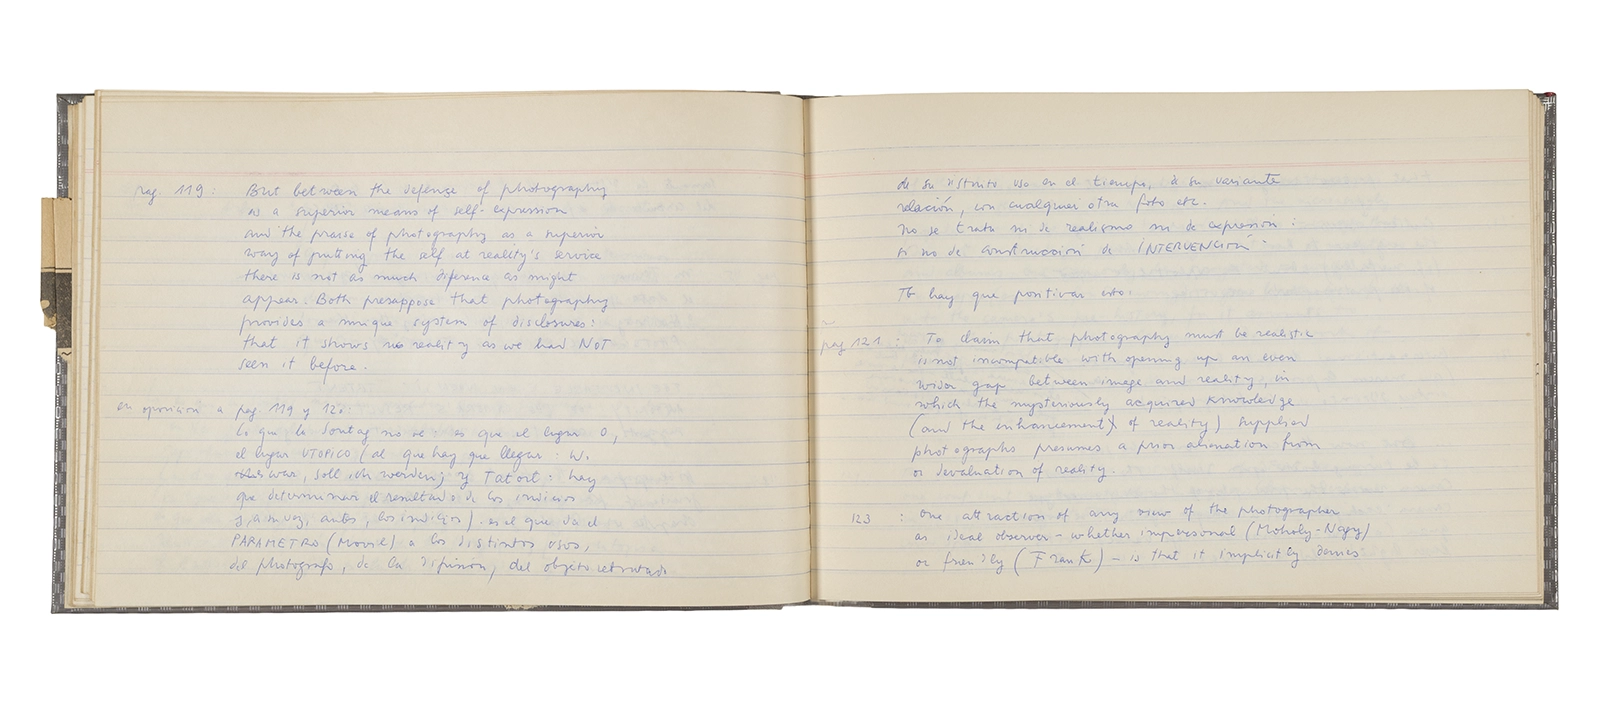 pag. 119: But between the defense of photography
as a superior means of self-expression
and the praise of photography as a superior
way of putting the self at reality's service
there is not as much diference as might
appear. Both presuppose that photography
provides a unique system of disclosures:
that it shows us reality as we had NOT
seen it before.
en oposición a pag. 119 y 120:
lo que la Sontag no ve: es que el lugar 0,
el lugar UTOPICO (al que hay que llegar: W.
Es war, soll ich werden; y Tatort: hay
que determinar el resultado de los indicios
y, a su vez, antes, los indicios) es el que da el
PARAMETRO (Movil) a los distintos usos,
del photografo, de la difusion, del objeto retratado
de su distinto uso en el tiempo, a su variante
relación, con cualquier otra foto etc.
No se trata ni de realismo ni de expresión:
si no de construcción de INTERVENCIÓN.
Tb hay que positivar esto.
pag 121: To claim that photography must be realistic
is not incompatible with opening up an even
wider gap between image and reality, in
which the mysteriously acquired knowledge
(and the enhancement) of reality) supplied
photographs presumes a prior alienation from
or devaluation of reality.
123: One attraction of any view of the photographer
as ideal observer - whether impersonal (Moholy-Nagy)
or friendly (Frank) - is that it implicitly denies